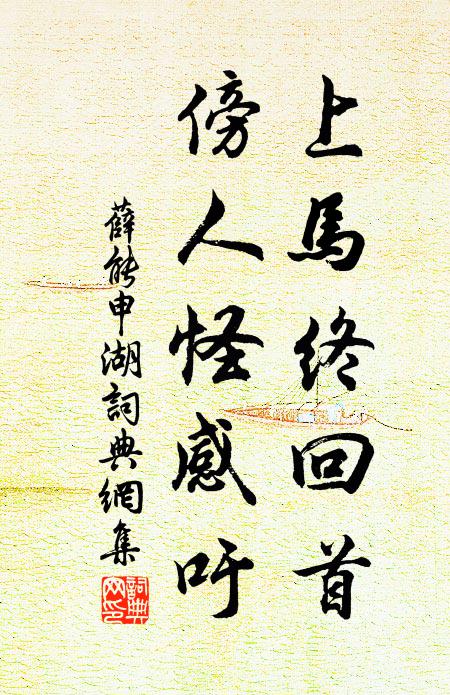 上馬終回首
傍人怪感吁
薛能申湖詞典網集
詞典網印